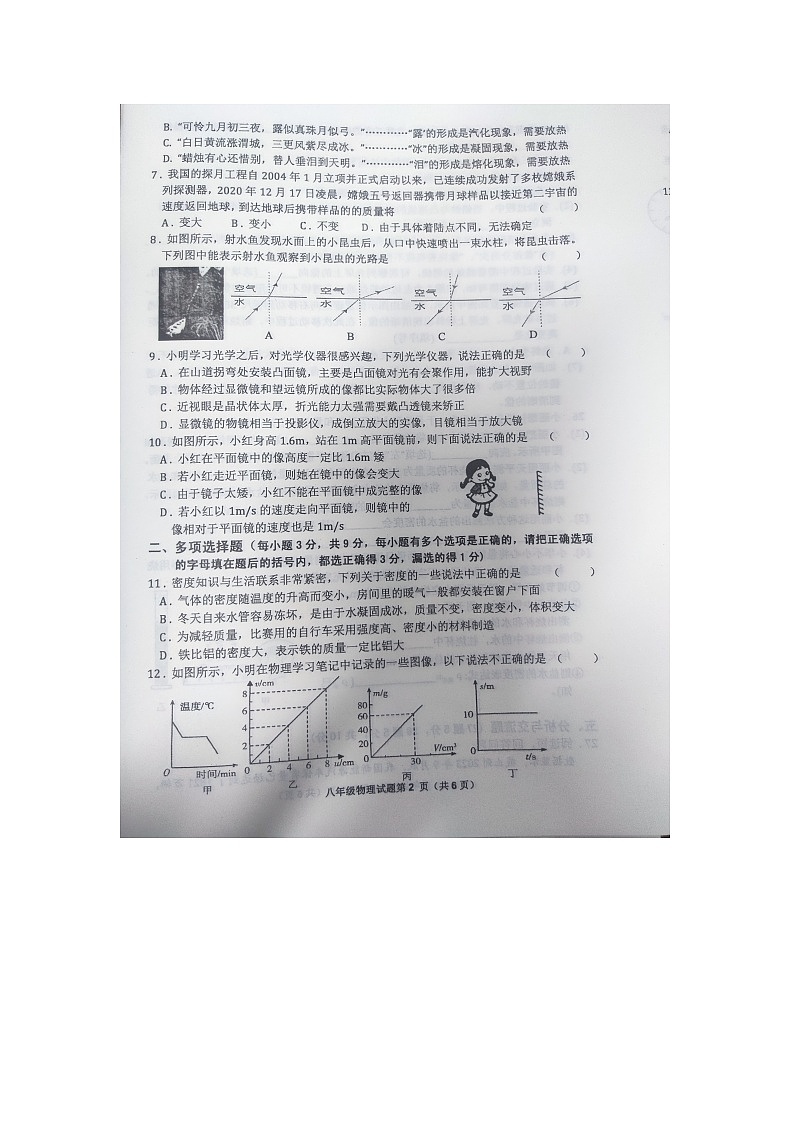 B. “可怜九月初三夜，露似真珠月似弓。”…………“露’的形成是汽化现象，需要放热
C. “白日黄流涨渭城，三更风紧尽成冰。”…………“冰”的形成是凝固现象，需要放热
D. “蜡烛有心还惜别，替人垂泪到天明。”…………“泪”的形成是熔化现象，需要放热
7．我国的探月工程自 2004 年 1 月立项并正式启动以来，已连续成功发射了多枚嫦娥系
列探测器，2020 年 12 月 17 日凌晨，嫦娥五号返回器携带月球样品以接近第二宇宙的
速度返回地球，到达地球后携带样品的的质量将 （ ）
A．变大 B．变小 C．不变 D．由于具体着陆点不同，无法确定
8．如图所示，射水鱼发现水面上的小昆虫后，从口中快速喷出一束水柱，将昆虫击落。
下列图中能表示射水鱼观察到小昆虫的光路是 （ ）
空气 空气 空气 空气
水 水 水 水
A B C D
9．小明学习光学之后，对光学仪器很感兴趣，下列光学仪器，说法正确的是 （ ）
A．在山道拐弯处安装凸面镜，主要是凸面镜对光有会聚作用，能扩大视野
B．物体经过显微镜和望远镜所成的像都比实际物体大了很多倍
C．近视眼是晶状体太厚，折光能力太强需要戴凸透镜来矫正
D．显微镜的物镜相当于投影仪，成倒立放大的实像，目镜相当于放大镜
10．如图所示，小红身高 1.6m，站在 1m 高平面镜前，则下面说法正确的是 （ ）
A．小红在平面镜中的像高度一定比 1.6m 矮
B．若小红走近平面镜，则她在镜中的像会变大
C．由于镜子太矮，小红不能在平面镜中成完整的像
D．若小红以 1m/s 的速度走向平面镜，则镜中的
像相对于平面镜的速度也是 1m/s
二、多项选择题（每小题 3 分，共 9 分，每小题有多个选项是正确的，请把正确选项
的字母填在题后的括号内，都选正确得 3 分，漏选的得 1 分)
11．密度知识与生活联系非常紧密，下列关于密度的一些说法中正确的是 （ ）
A．气体的密度随温度的升高而变小，房间里的暖气一般都安装在窗户下面
B．冬天自来水管容易冻坏，是由于水凝固成冰，质量不变，密度变小，体积变大
C．为减轻质量，比赛用的自行车采用强度高、密度小的材料制造
D．铁比铝的密度大，表示铁的质量一定比铝大
12．如图所示，小明在物理学习笔记中记录的一些图像，以下说法不正确的是 （ ）
温度/℃
O 时间/min
甲
v/cm
8
6
4
2
0 2 4 6 8 u/cm
乙
m/g
80
60
40
20
0 30 V/cm³
丙
s/m
10
0 t/s
丁
八年级物理试题第 2 页（共 6 页）